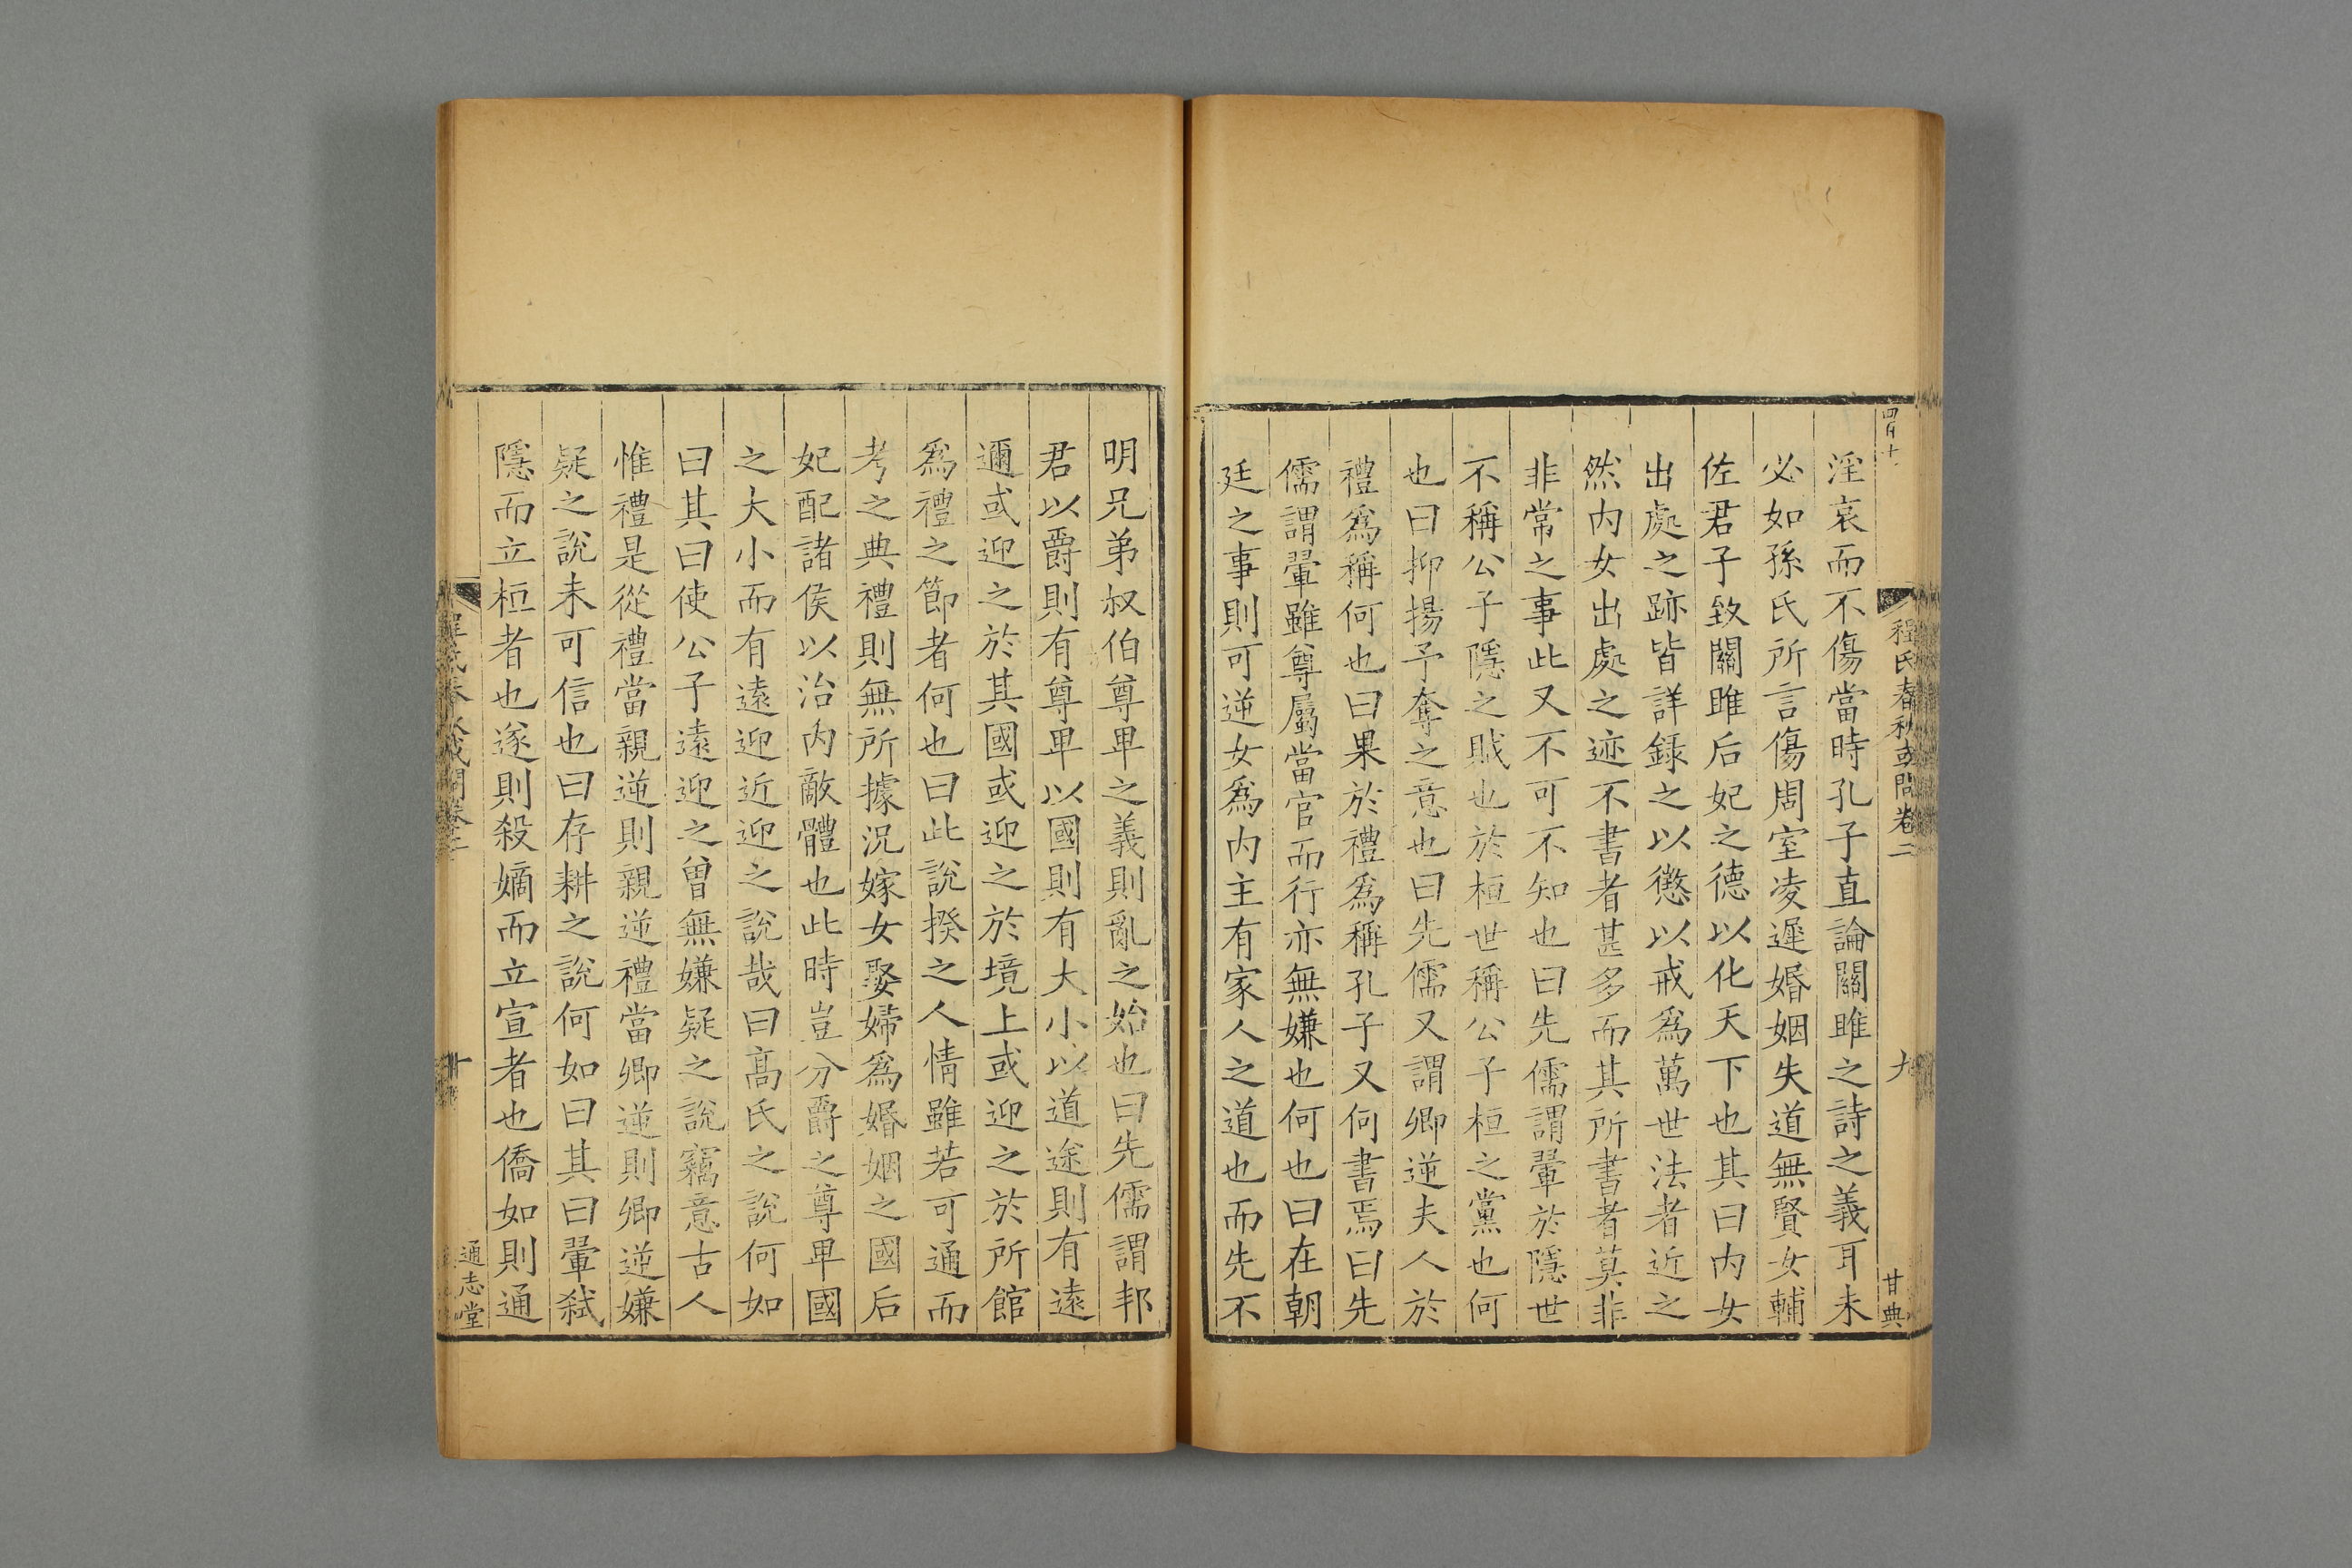 程氏春秋或問卷二
九
甘典
淫哀而不傷當時孔子直論關雎之詩之義耳未
必如孫氏所言傷周室凌遲婚姻失道無賢女輔
佐君子致關雎后妃之德以化天下也其曰内女
出處之跡皆詳録之以懲以戒爲萬世法者近之
然内女出處之迹不書者甚多而其所書者莫非
非常之事此又不可不知也曰先儒謂翬於隱世
不稱公子隱之賊也於桓世稱公子桓之黨也何
也曰抑揚予奪之意也曰先儒又謂卿逆夫人於
禮爲稱何也曰果於禮爲稱孔子又何書焉曰先
儒謂翬雖尊屬當官而行亦無嫌也何也曰在朝
廷之事則可逆女爲内主有家人之道也而先不
明兄弟叔伯尊卑之義則亂之始也曰先儒謂邦
君以爵則有尊卑以國則有大小以道途則有遠
邇或迎之於其國或迎之於境上或迎之於所館
爲禮之節者何也曰此說揆之人情雖若可通而
考之典禮則無所據況嫁女娶婦爲婚姻之國后
妃配諸侯以治内敵體也此時豈分爵之尊卑國
之大小而有遠迎近迎之說哉曰高氏之說何如
曰其曰使公子遠迎之曽無嫌疑之說竊意古人
惟禮是從禮當親逆則親逆禮當卿逆則卿逆嫌
疑之說未可信也曰存耕之說何如曰其曰翬弑
隱而立桓者也遂則殺嫡而立宣者也僑如則通
十
通志堂